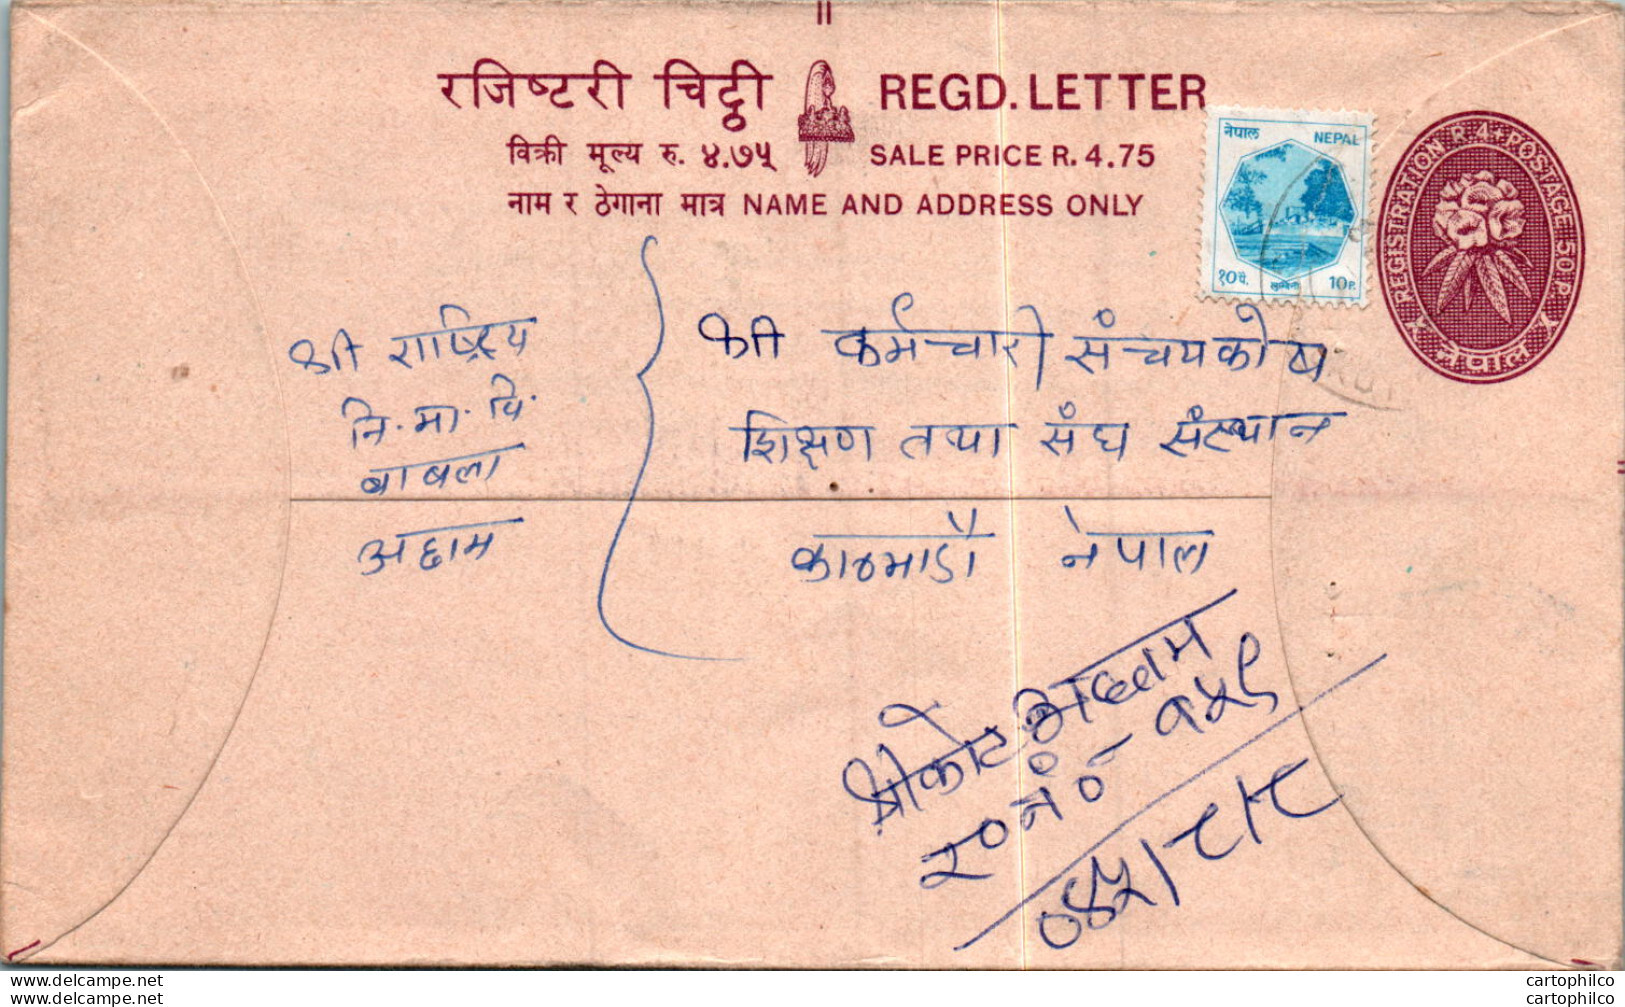 रजिष्टरी चिट्ठी REGD. LETTER
विक्री मूल्य रु. ४.७५ SALE PRICE R. 4.75
नाम र ठेगाना मात्र NAME AND ADDRESS ONLY
नेपाल NEPAL
१० पै. लुम्बिनी 10 P.
REGISTRATION R.4+POSTAGE 50 P.
नेपाल
श्री राष्ट्रिय
नि. मा. वि.
बाबला
अछाम
श्री कर्मचारी संचयकोष
शिक्षण तथा संघ संस्थान
काठमाडौं नेपाल
श्रीकोट अछाम
र० नं० - १५९
०४५।८।८
www.delcampe.net cartophilco
www.delcampe.net cartophilco